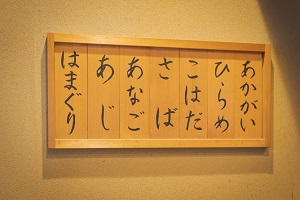 あかがい
ひらめ
こはだ
さば
あなご
あじ
はまぐり